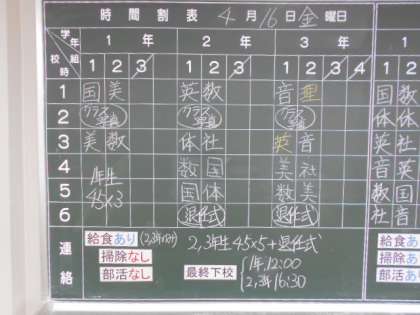 時間割表 4月16日金曜日
学年 組 校時
1年 2年 3年
1 2 3 1 2 3 1 2 3 4 1 2
1 国 美 英 数 音 理 国 数
2 クラス写真 クラス写真 クラス写真 体 体
3 美 数 体 社 英 音 英 社
4 数 国 美 社 音 英
5 国 体 数 美 数 国
6 退任式 退任式 社 音
1年生
45×3
連絡
給食あり(2,3年のみ) 2,3年生45×5+退任式
掃除なし
部活なし
最終下校 1年.12:00
2,3年16:30
給食あ
掃除あ
部活あ